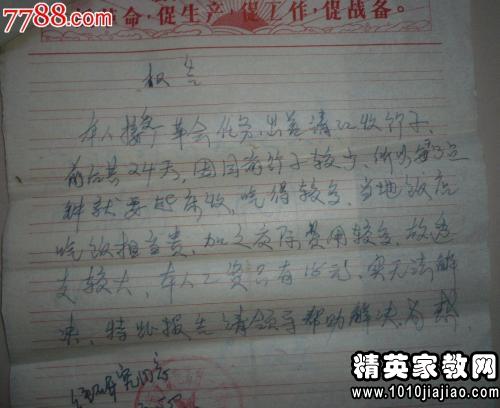 7788.com
革命,促生产,促工作,促战备。
报告
本人接受厂革会任务,出差清江收竹子,
前后共24天,因目前竹子较少,所以每
钟就要起床收,吃得较多,当地饭店
吃饭相当贵,加之交际费用较多,故
支较大,本人工资只有18元,实无法解
决,特此报告,请领导帮助解决为
精英家教网
www.1010jiajiao.com